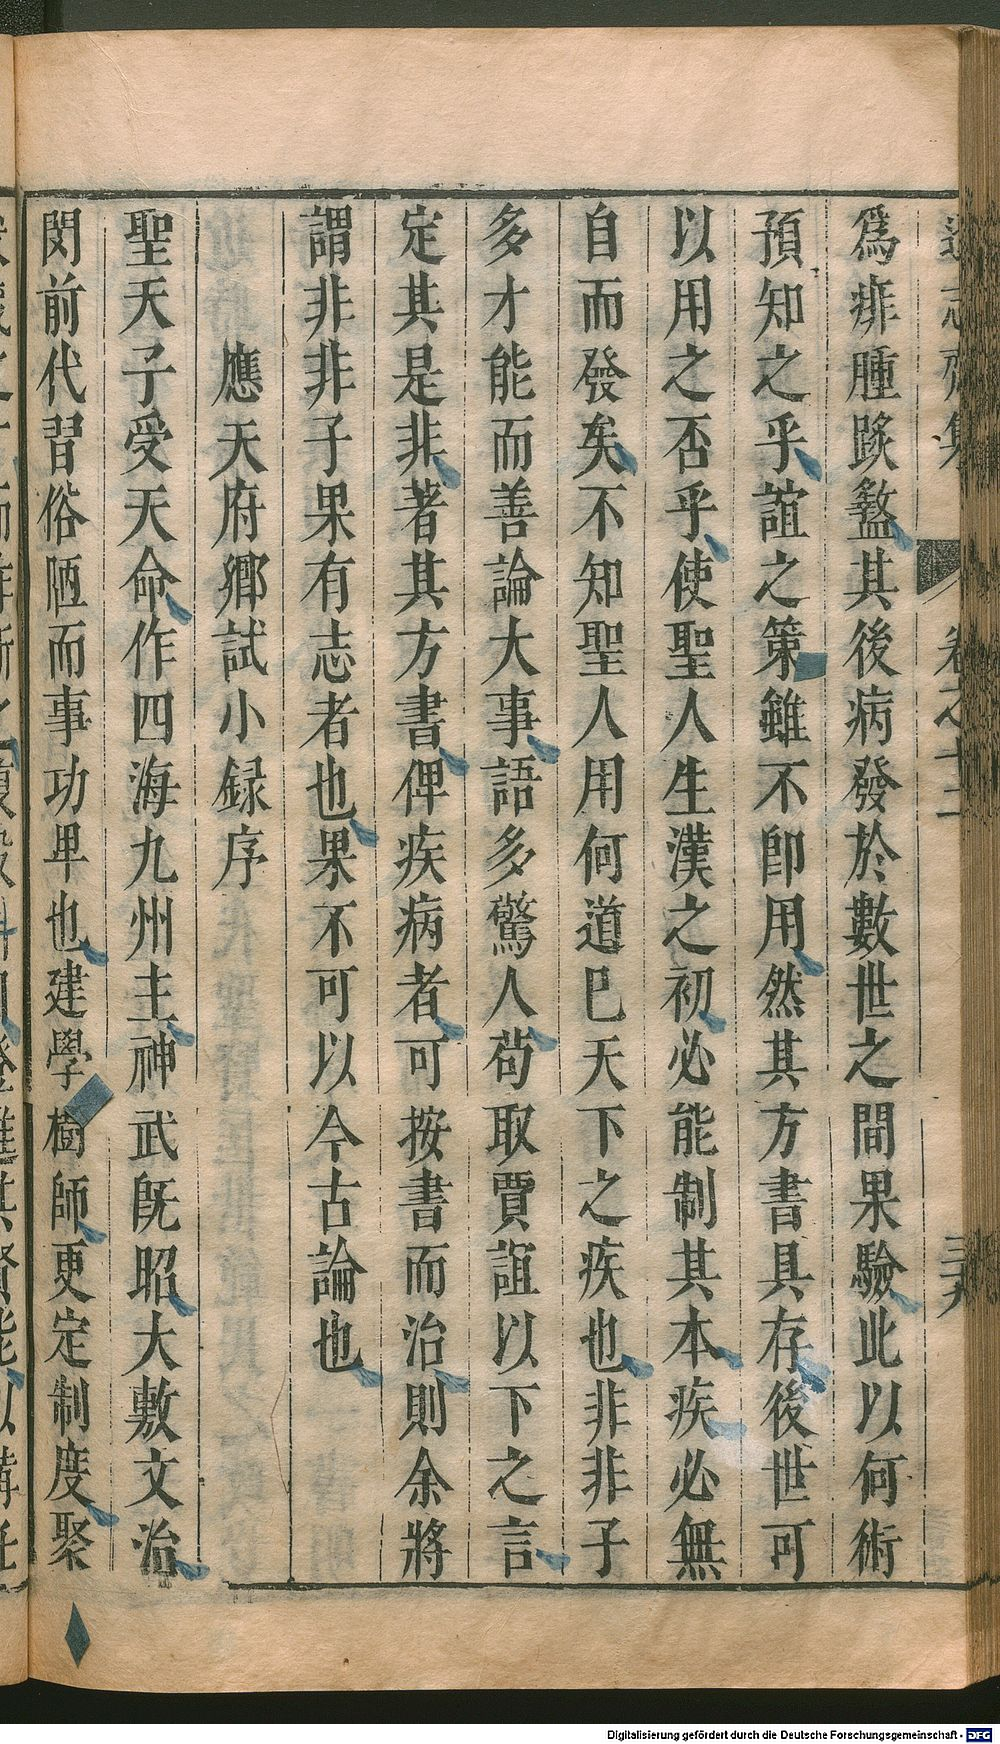 遜志齋集 卷之十二 三九
爲痱腫䠫盭其後病發於數世之間果驗此以何術
預知之乎誼之策雖不卽用然其方書具存後世可
以用之否乎使聖人生漢之初必能制其本疾必無
自而發矣不知聖人用何道已天下之疾也非非子
多才能而善論大事語多驚人茍取賈誼以下之言
定其是非著其方書俾疾病者可按書而治則余將
謂非非子果有志者也果不可以今古論也
應天府鄉試小録序
聖天子受天命作四海九州主神武旣昭大敷文治
閔前代習俗陋而事功卑也建學樹師更定制度聚
Digitalisierung gefördert durch die Deutsche Forschungsgemeinschaft - DFG